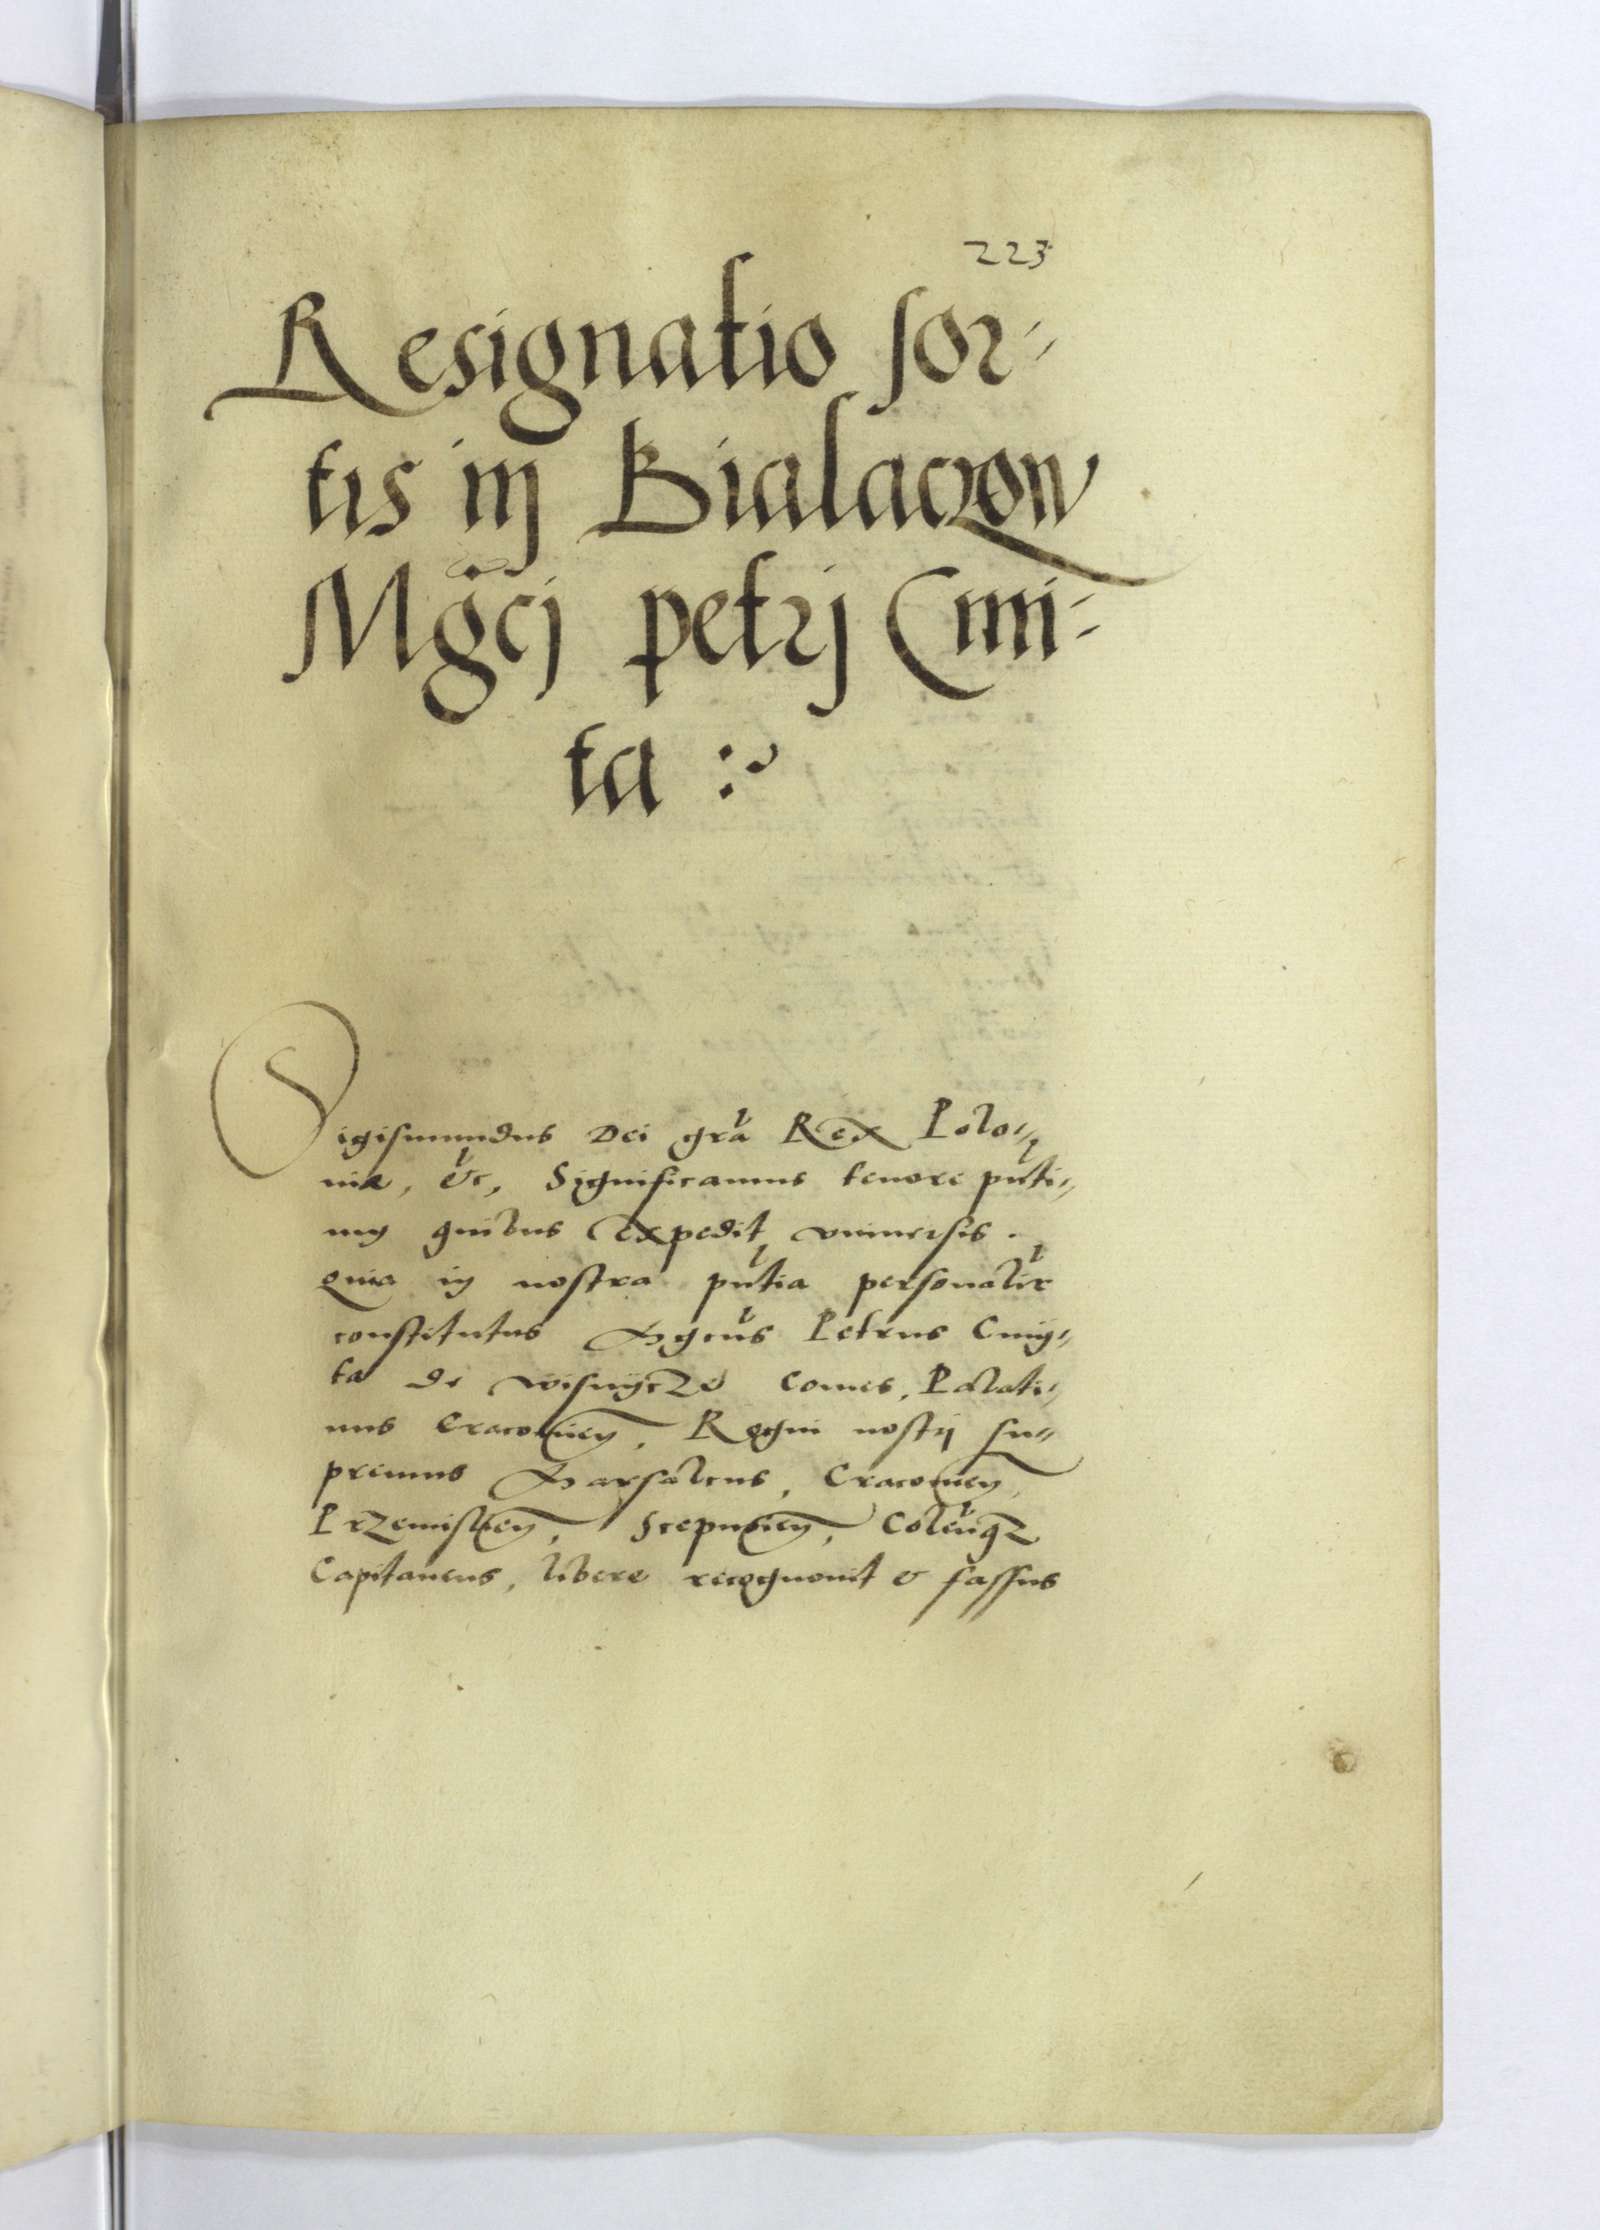 223
Resignatio sor-
tis in Bialaczow
Mgci petrj Cmi-
ta :
Sigismundus Dei gra Rex Polo-
niæ, &c, Significamus tenore pnti-
um quibus expedit, vniuersis.
Quia in nostra pntia personaltr
constitutus Mgcus Petrus Cmy-
ta de wisnycze Comes, Palati-
nus Cracouien, Regni nostrj su-
premus Marsalcus, Cracouien,
Przemislien, Scepusien, Colensqz
Capitaneus, libere recognouit & fassus